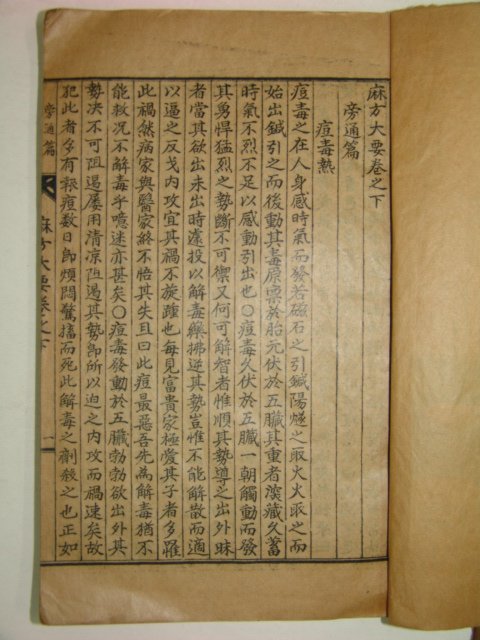 麻方大要卷之下
旁通篇
痘毒熱
痘毒之在人身感時氣而發若磁石之引鍼陽燧之取火火取之而
始出鍼引之而後動其毒原稟於胎元伏於五臟其重者深藏久蓄
時氣不烈不足以感動引出也〇痘毒久伏於五臟一朝觸動而發
其勇悍猛烈之勢斷不可禦又何可解智者惟順其勢導之出外昧
者當其欲出未出時遽投以解毒藥拂逆其勢豈惟不能解散而適
以逼之反戈內攻宜其禍不旋踵也每見富貴家極愛其子者多罹
此禍然病家與醫家終不悟其失且曰此痘最惡吾先為解毒猶不
能救况不解毒乎噫迷亦甚矣〇痘毒發動於五臟勃勃欲出外其
勢决不可阻遏屢用清凉阻遏其勢卽所以迫之內攻而禍速矣故
犯此者多有報痘数日卽煩悶驚搐而死此解毒之劑殺之也正如
旁通篇
麻方大要卷之下
一